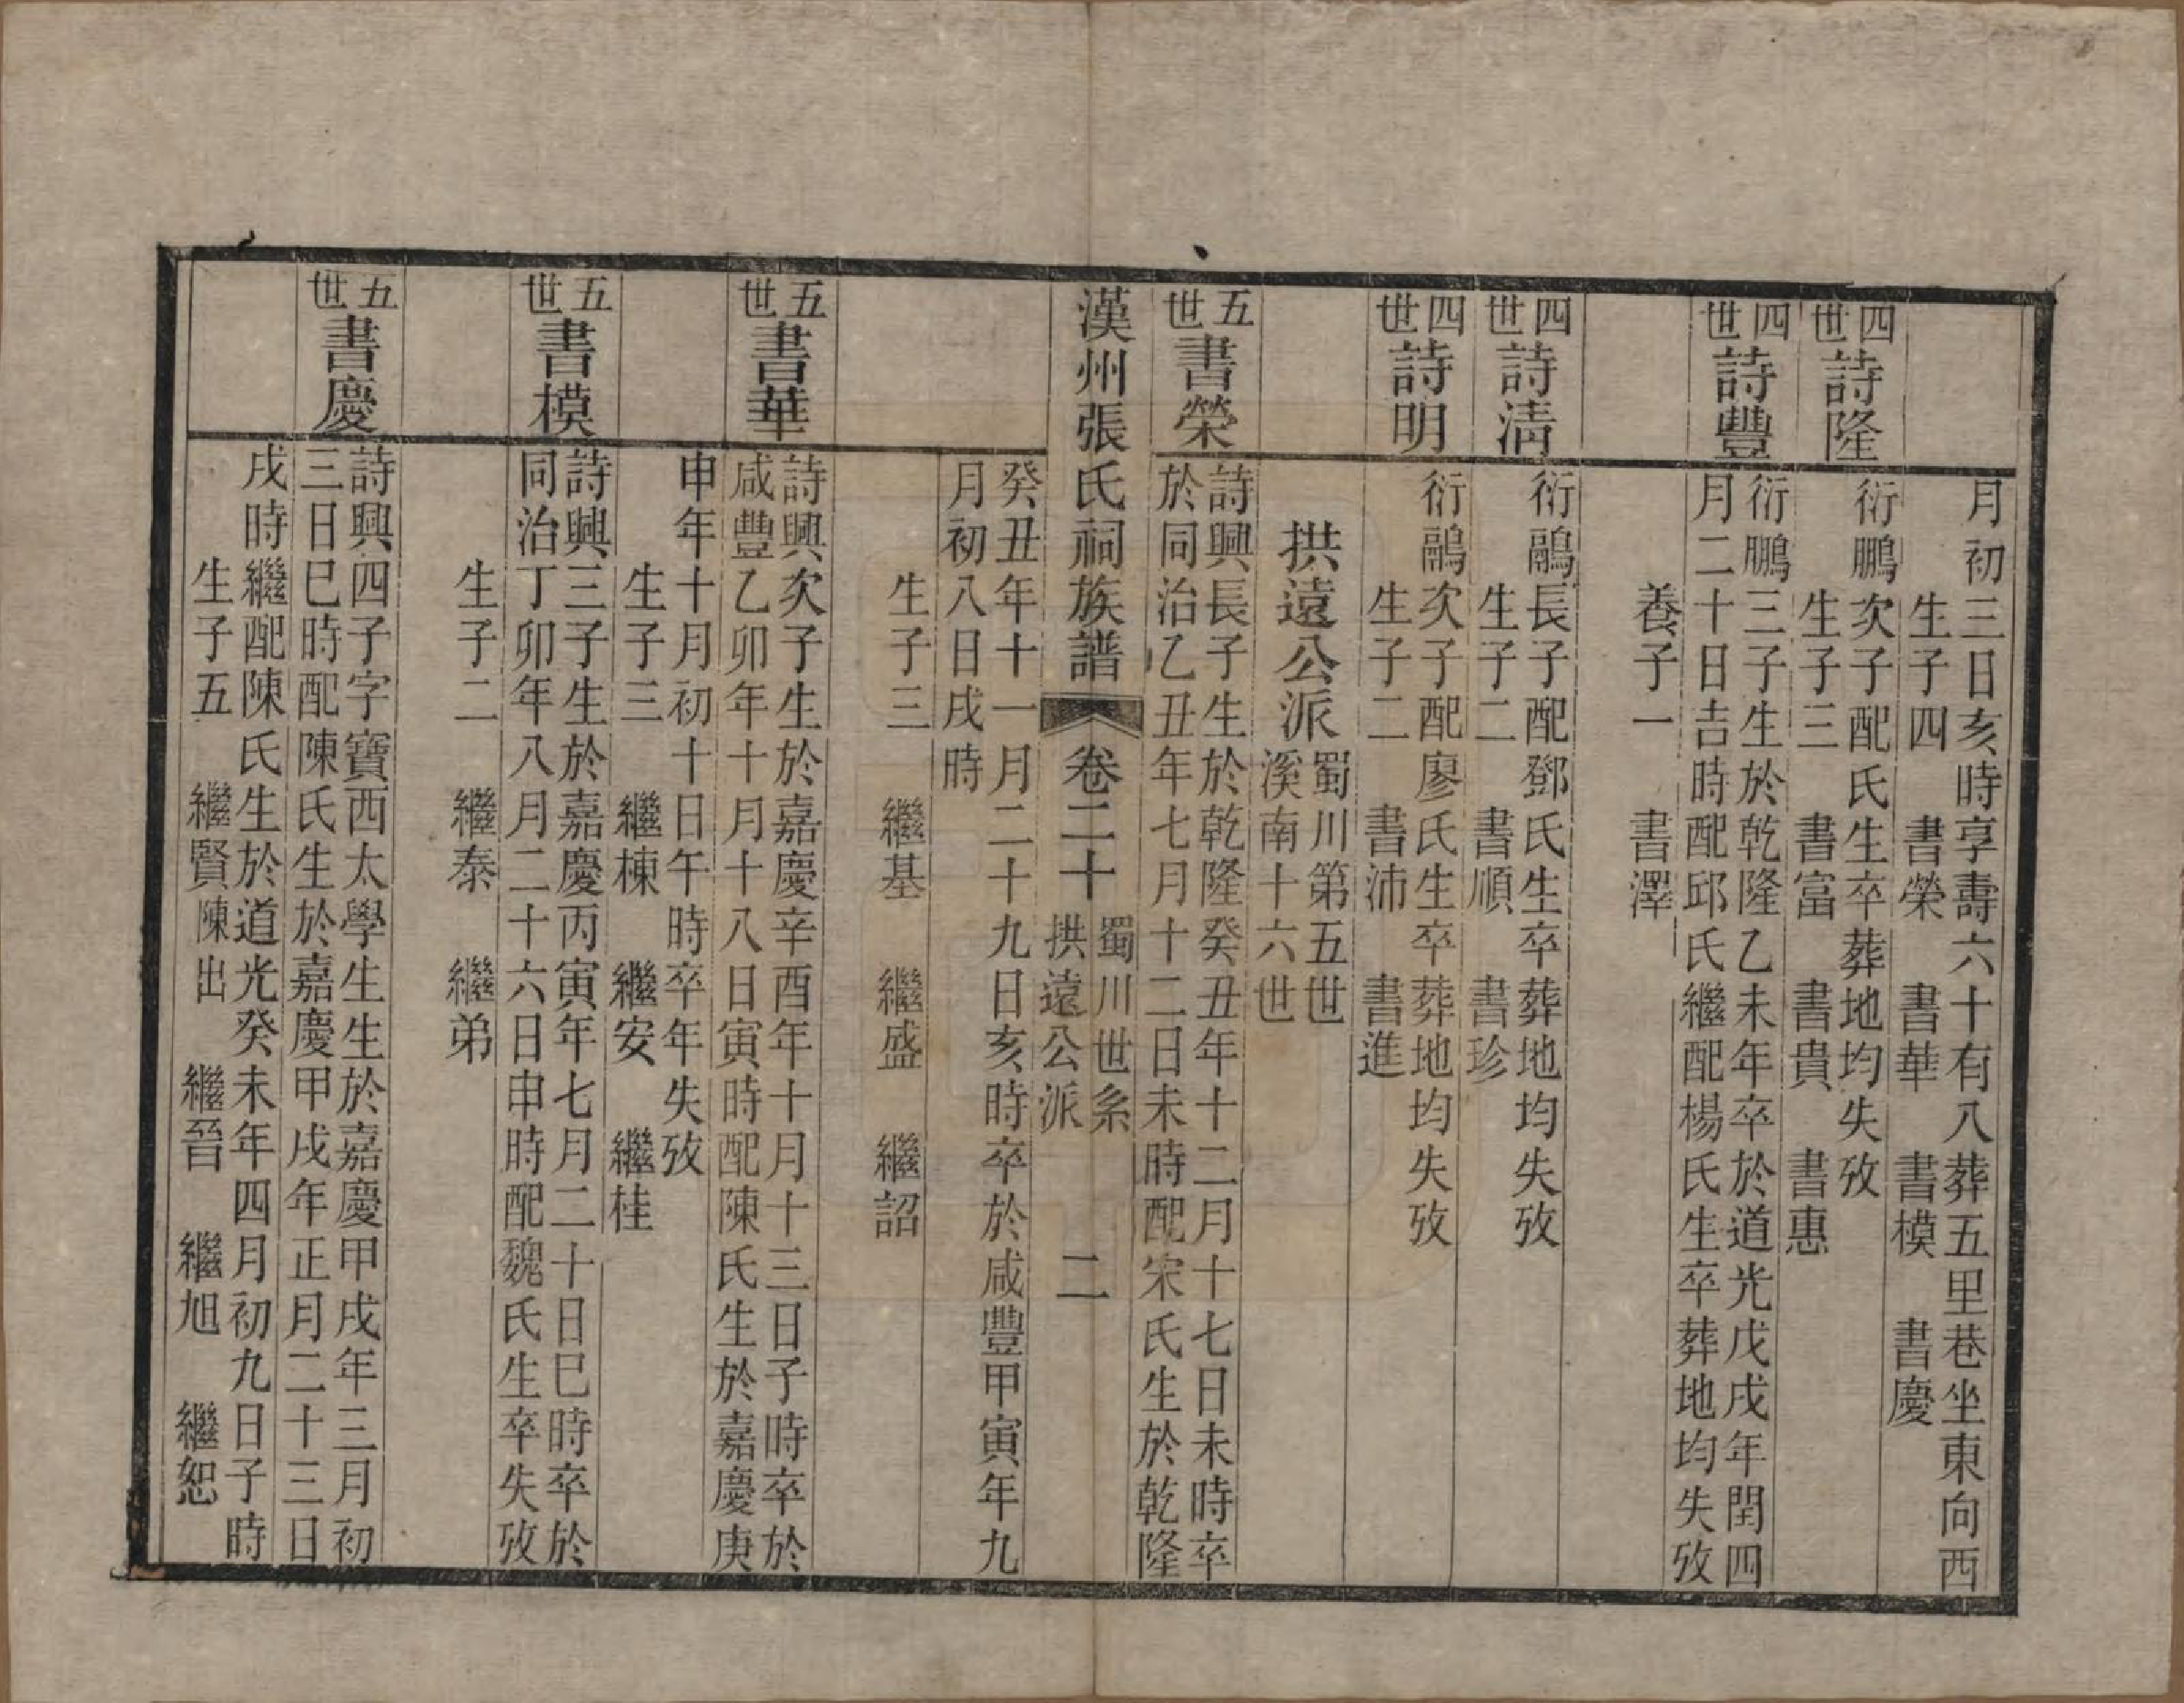 月初三日亥時享壽六十有八葬五里巷坐東向西
生子四 書榮 書華 書模 書慶
四世 詩隆
衍鵬次子配氏生卒葬地均失攷
生子三 書富 書貴 書惠
四世 詩豐
衍鵬三子生於乾隆乙未年卒於道光戊戌年閏四
月二十日吉時配邱氏繼配楊氏生卒葬地均失攷
養子一 書澤
四世 詩清
衍鷸長子配鄧氏生卒葬地均失攷
生子二 書順 書珍
四世 詩明
衍鷸次子配廖氏生卒葬地均失攷
生子二 書沛 書進
拱遠公派
蜀川第五世
溪南十六世
五世 書榮
詩興長子生於乾隆癸丑年十二月十七日未時卒
於同治乙丑年七月十二日未時配宋氏生於乾隆
漢州張氏祠族譜 卷二十
蜀川世系
拱遠公派
二
癸丑年十一月二十九日亥時卒於咸豐甲寅年九
月初八日戌時
生子三 繼基 繼盛 繼詔
五世 書華
詩興次子生於嘉慶辛酉年十月十三日子時卒於
咸豐乙卯年十月十八日寅時配陳氏生於嘉慶庚
申年十月初十日午時卒年失攷
生子三 繼棟 繼安 繼桂
五世 書模
詩興三子生於嘉慶丙寅年七月二十日巳時卒於
同治丁卯年八月二十六日申時配魏氏生卒失攷
生子二 繼泰 繼弟
五世 書慶
詩興四子字寶西太學生生於嘉慶甲戌年三月初
三日巳時配陳氏生於嘉慶甲戌年正月二十三日
戌時繼配陳氏生於道光癸未年四月初九日子時
生子五 繼賢陳出 繼晉 繼旭 繼恕